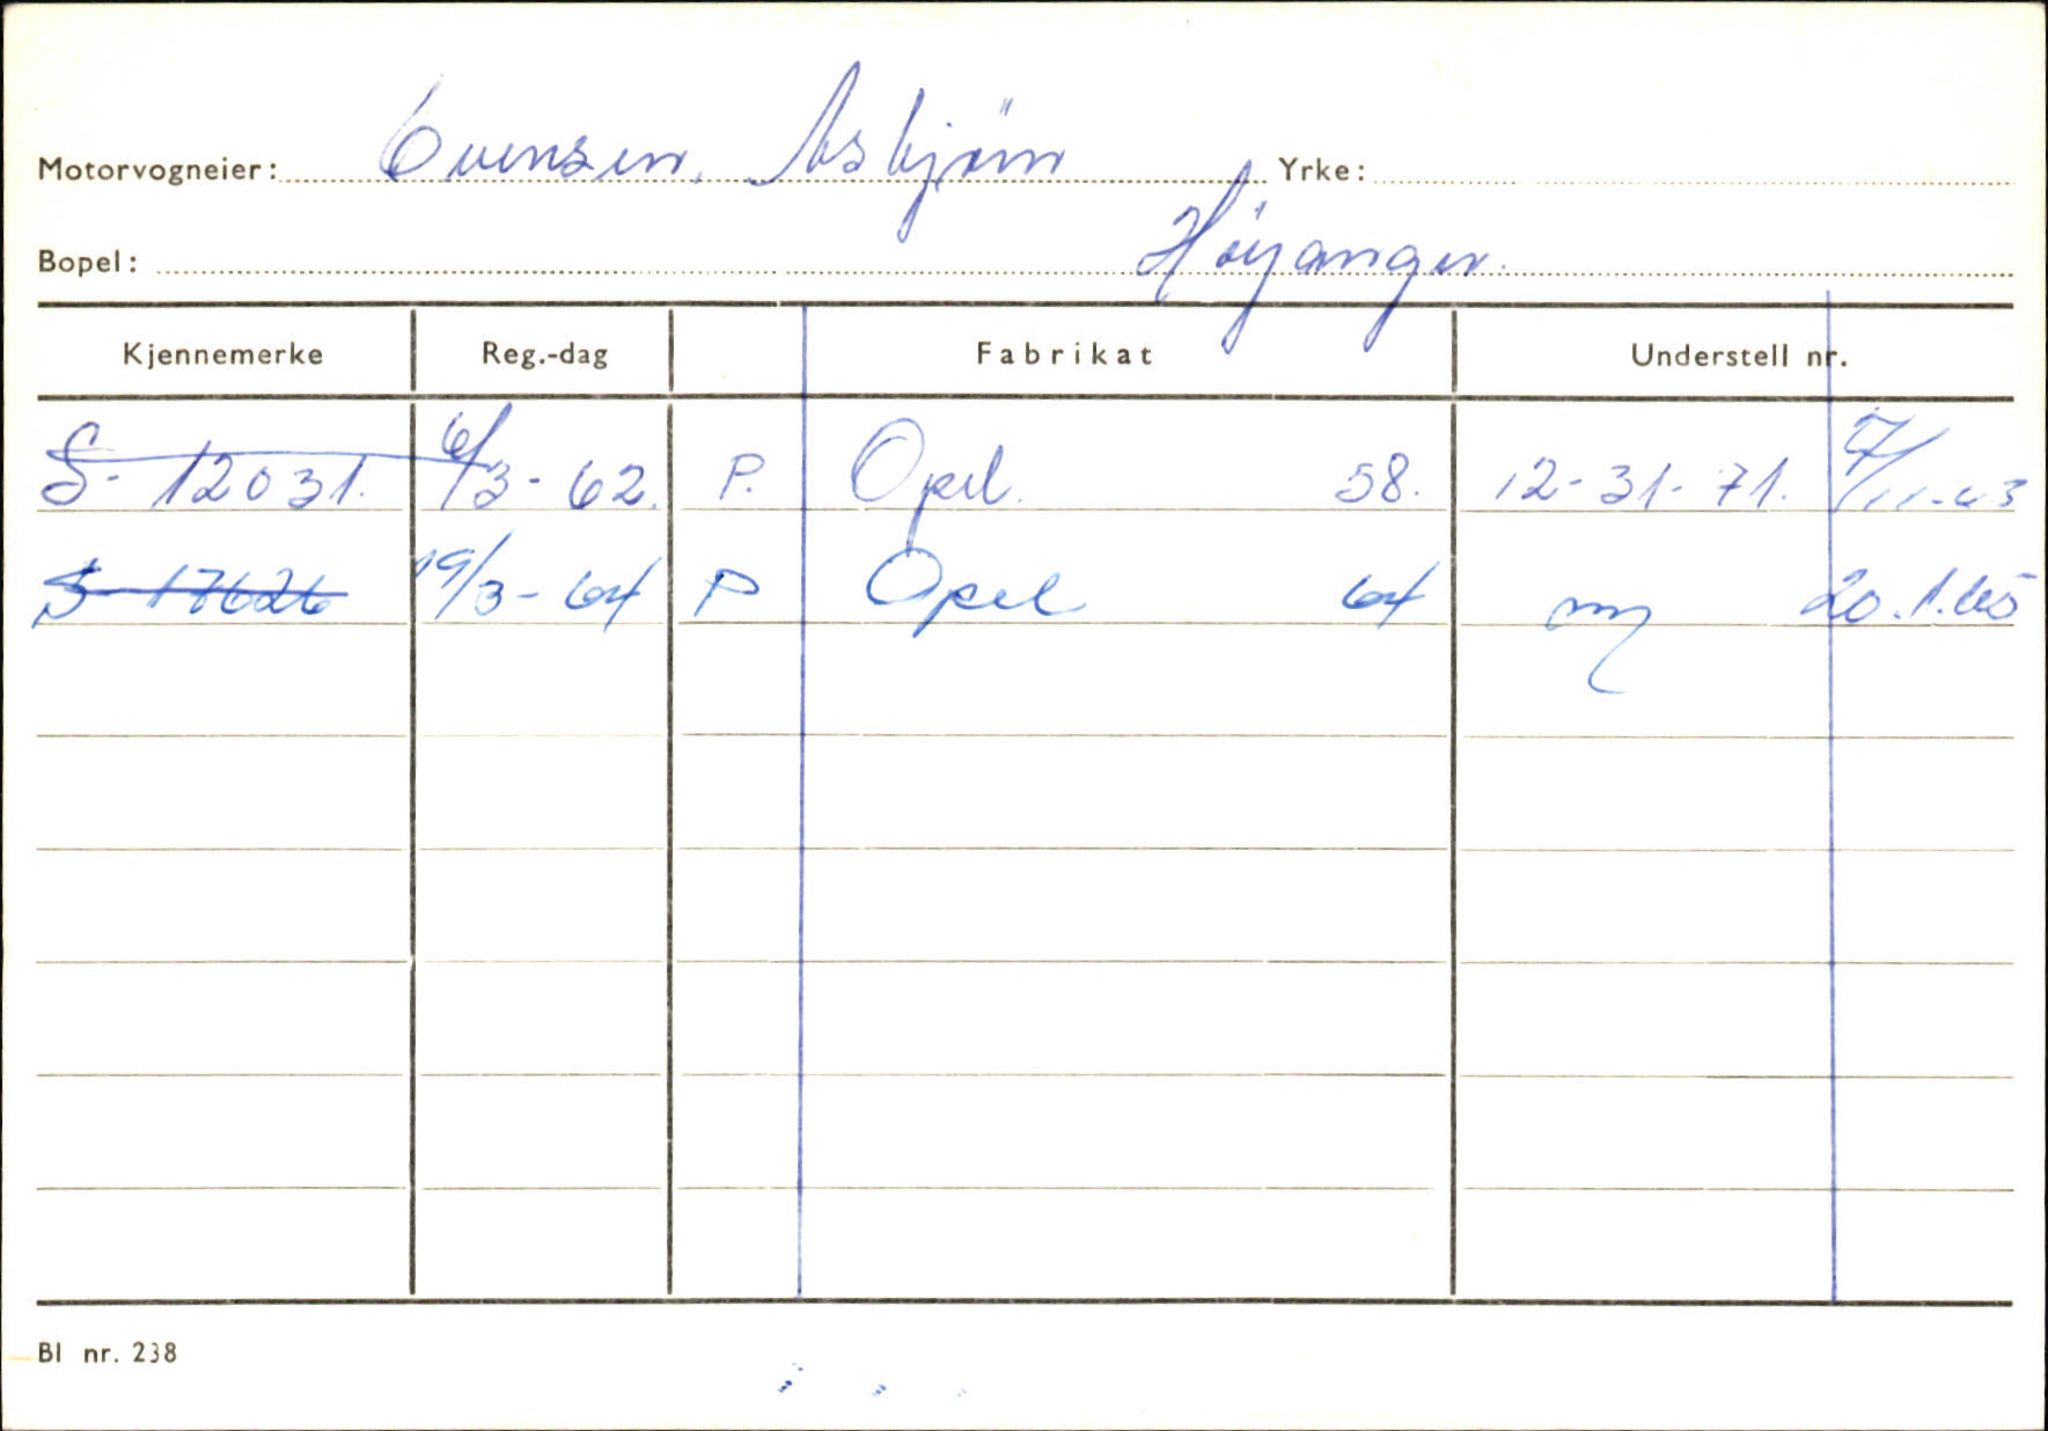 Motorvogneier: Evensen, Asbjörn Yrke:
Bopel: Høyanger.
Kjennemerke Reg.-dag Fabrikat Understell nr.
S- 12031. 6/3-62. P. Opel. 58. 12-31-71. 7/11-63
S-17626 19/3-64 P Opel 64 ny 20.1.65
Bl nr. 238